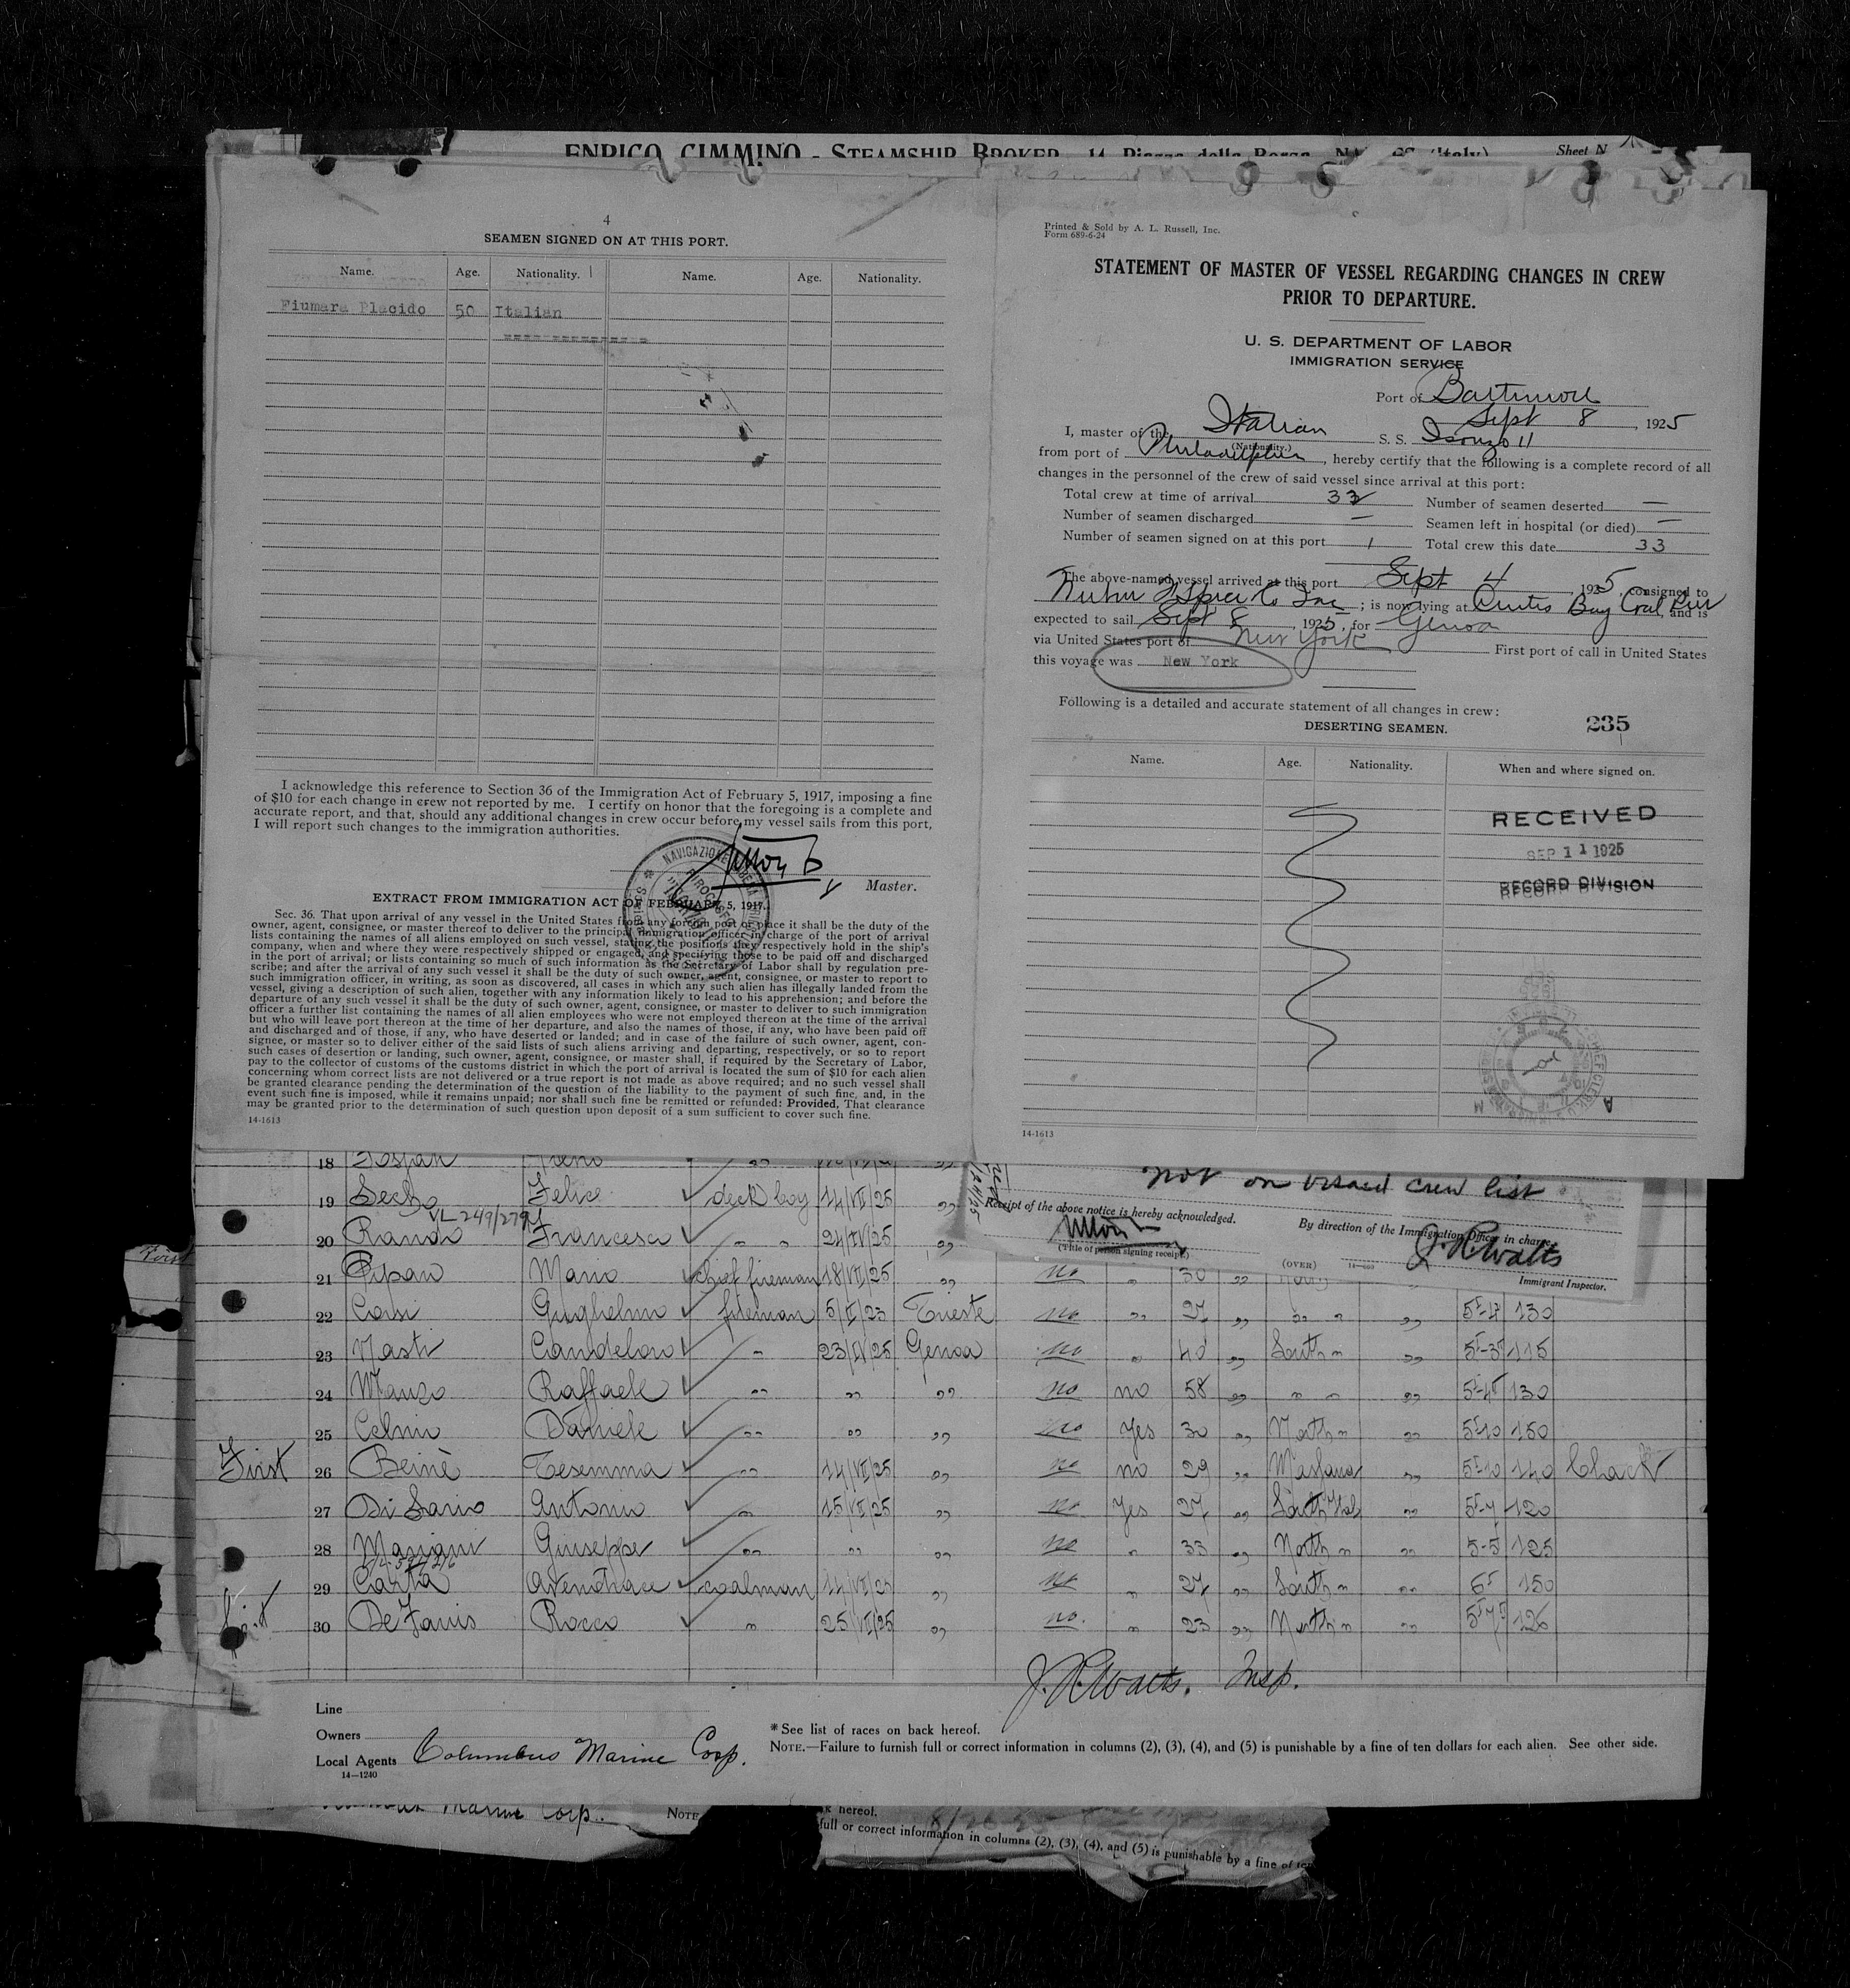 ENRICO CIMMINO - STEAMSHIP BROKER - 14 Piazza della Borsa, (Italy) Sheet N
4
SEAMEN SIGNED ON AT THIS PORT.
Name. Age. Nationality. Name. Age. Nationality.
Fiumara Placido 50 Italian
I acknowledge this reference to Section 36 of the Immigration Act of February 5, 1917, imposing a fine
of $10 for each change in crew not reported by me. I certify on honor that the foregoing is a complete and
accurate report, and that, should any additional changes in crew occur before my vessel sails from this port,
I will report such changes to the immigration authorities.
Master.
NAVIGAZIONE
EXTRACT FROM IMMIGRATION ACT OF FEBRUARY 5, 1917.
Sec. 36. That upon arrival of any vessel in the United States from any foreign port or place it shall be the duty of the
owner, agent, consignee, or master thereof to deliver to the principal immigration officer in charge of the port of arrival
lists containing the names of all aliens employed on such vessel, stating the positions they respectively hold in the ship's
company, when and where they were respectively shipped or engaged, and specifying those to be paid off and discharged
in the port of arrival; or lists containing so much of such information as the Secretary of Labor shall by regulation pre-
scribe; and after the arrival of any such vessel it shall be the duty of such owner, agent, consignee, or master to report to
such immigration officer, in writing, as soon as discovered, all cases in which any such alien has illegally landed from the
vessel, giving a description of such alien, together with any information likely to lead to his apprehension; and before the
departure of any such vessel it shall be the duty of such owner, agent, consignee, or master to deliver to such immigration
officer a further list containing the names of all alien employees who were not employed thereon at the time of the arrival
but who will leave port thereon at the time of her departure, and also the names of those, if any, who have been paid off
and discharged and of those, if any, who have deserted or landed; and in case of the failure of such owner, agent, con-
signee, or master so to deliver either of the said lists of such aliens arriving and departing, respectively, or so to report
such cases of desertion or landing, such owner, agent, consignee, or master shall, if required by the Secretary of Labor,
pay to the collector of customs of the customs district in which the port of arrival is located the sum of $10 for each alien
concerning whom correct lists are not delivered or a true report is not made as above required; and no such vessel shall
be granted clearance pending the determination of the question of the liability to the payment of such fine, and, in the
event such fine is imposed, while it remains unpaid; nor shall such fine be remitted or refunded: Provided, That clearance
may be granted prior to the determination of such question upon deposit of a sum sufficient to cover such fine.
14-1613
Printed & Sold by A. L. Russell, Inc.
Form 689-6-24
STATEMENT OF MASTER OF VESSEL REGARDING CHANGES IN CREW
PRIOR TO DEPARTURE.
U. S. DEPARTMENT OF LABOR
IMMIGRATION SERVICE
Port of Baltimore
Sept 8, 1925
I, master of the Italian S. S. Isonzo II
(Nationality.)
from port of Philadelphia, hereby certify that the following is a complete record of all
changes in the personnel of the crew of said vessel since arrival at this port:
Total crew at time of arrival 32 Number of seamen deserted —
Number of seamen discharged — Seamen left in hospital (or died) —
Number of seamen signed on at this port 1 Total crew this date 33
The above-named vessel arrived at this port Sept 4, 1925, consigned to
Co Inc; is now lying at Curtis Bay Coal Pier, and is
expected to sail Sept 8, 1925, for Genoa
via United States port of New York First port of call in United States
this voyage was New York
Following is a detailed and accurate statement of all changes in crew:
DESERTING SEAMEN. 235
Name. Age. Nationality. When and where signed on.
RECEIVED
SEP 11 1925
RECORD DIVISION
14-1613
not on visaed crew list
Receipt of the above notice is hereby acknowledged.
By direction of the Immigration Officer in charge.
J. R. Watts
(Title of person signing receipt.)
(OVER)
Immigrant Inspector.
18
19 Felice deck boy 14/VII/25 "
VL 249/279
20 Francesco " " 24/IV/25 "
21 Pipan Mario chief fireman 18/VII/25 " no " 30 "
22 Corsi Guglielmo fireman 5/II/23 Trieste no " 27 " " " " 5-4 130
23 Nasti Candeloro " 23/IV/25 Genoa no " 40 " South " " 5-3 115
24 Manzo Raffaele " " " no no 58 " " " " 5-4 130
25 Celmi Daniele " " " no Yes 30 " North " " 5-10 150
First 26 Beinè Tesemma " 14/VII/25 " no no 29 " " 5-10 140 black
27 Di Sario Antonio " 15/VII/25 " no Yes 27 " South Ital " 5-7 120
28 Mariani Giuseppe " " " no " 33 " North " " 5-5 125
29 Carta Avendrace coalman 14/VII/25 " no " 27 " South " " 6 150
First 30 De Fanis Rocco " 25/VII/25 " no. " 23 " North " " 5-7 126
J. R. Watts. Insp.
Line
Owners
Local Agents Columbus Marine Corp.
14—1240
*See list of races on back hereof.
NOTE.—Failure to furnish full or correct information in columns (2), (3), (4), and (5) is punishable by a fine of ten dollars for each alien. See other side.
Marine Corp. NOTE
k hereof.
full or correct information in columns (2), (3), (4), and (5) is punishable by a fine of ten